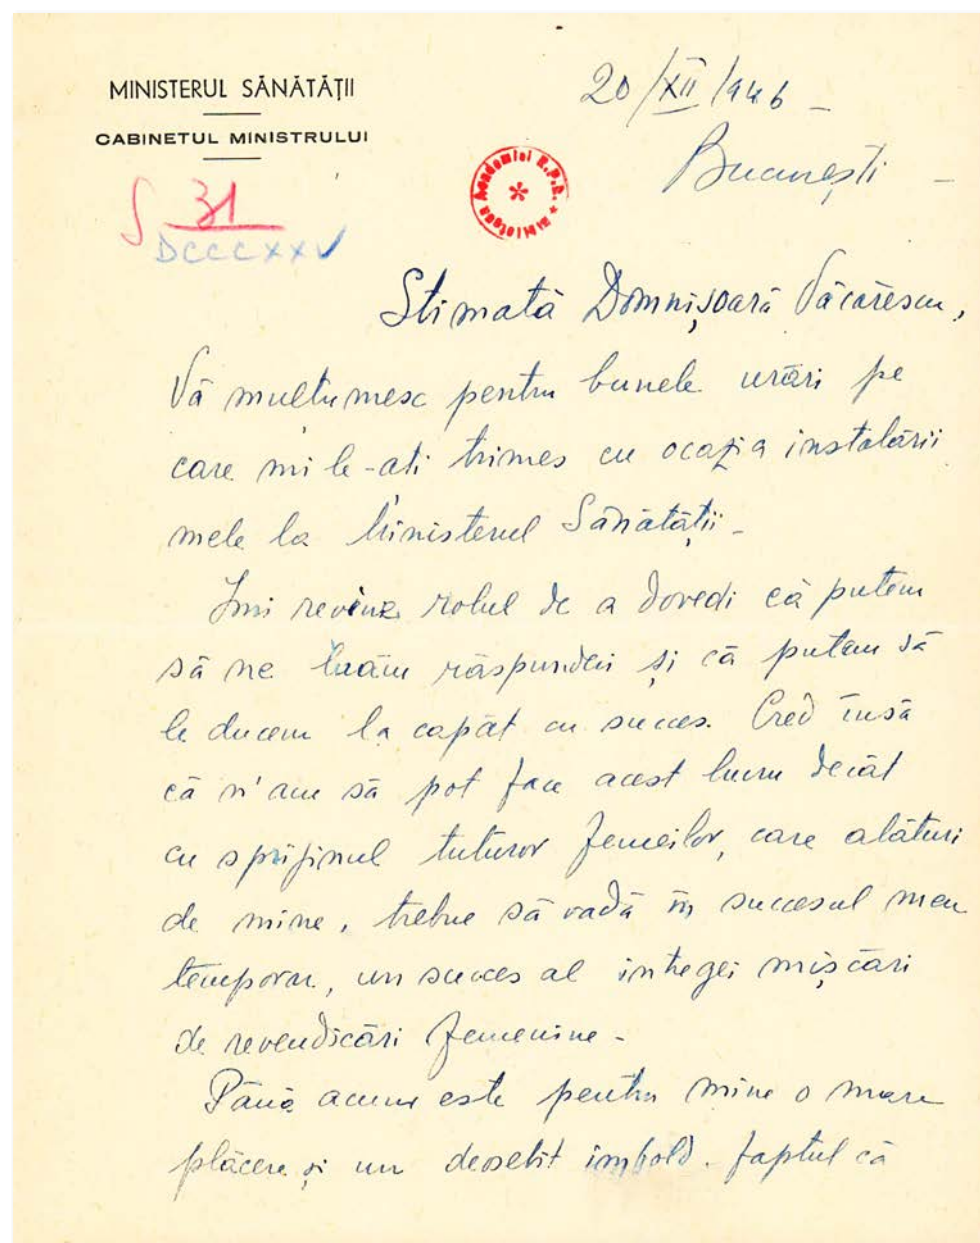 MINISTERUL SĂNĂTĂŢII
CABINETUL MINISTRULUI
20/XII/946 -
București -
Biblioteca Academiei R.P.R. *
S 31
DCCCXXV
Stimată Domnișoară Văcărescu,
Vă mulțumesc pentru bunele urări pe
care mi le-ați trimes cu ocazia instalării
mele la Ministerul Sănătății -
Îmi revine rolul de a dovedi că putem
să ne luăm răspunderi și că putem să
le ducem la capăt cu succes. Cred însă
că n'am să pot face acest lucru decât
cu sprijinul tuturor femeilor, care alături
de mine, trebue să vadă în succesul meu
temporar, un succes al intregei mișcări
de revendicări femenine -
Până acum este pentru mine o mare
plăcere și un deosebit imbold. faptul că